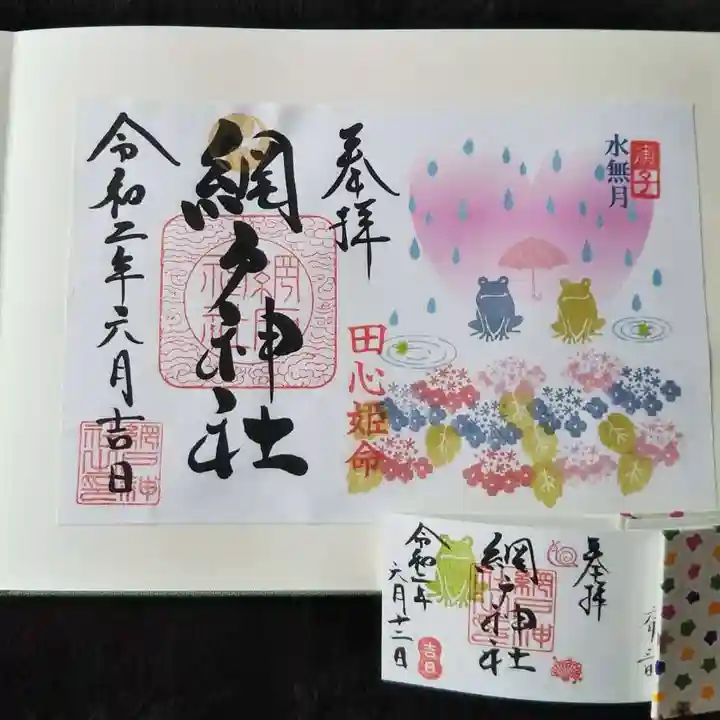 水無月
庚子
奉拝
田心姫命
網戸神社
令和二年六月吉日
奉拝
網戸神社
令和二年
六月十二日
吉日